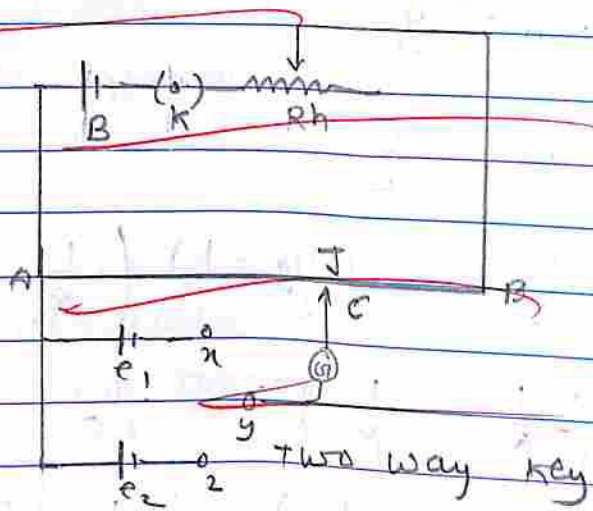 B
K
Rh
A
J
C
B
e1
x
G
y
e2
2
Two way key